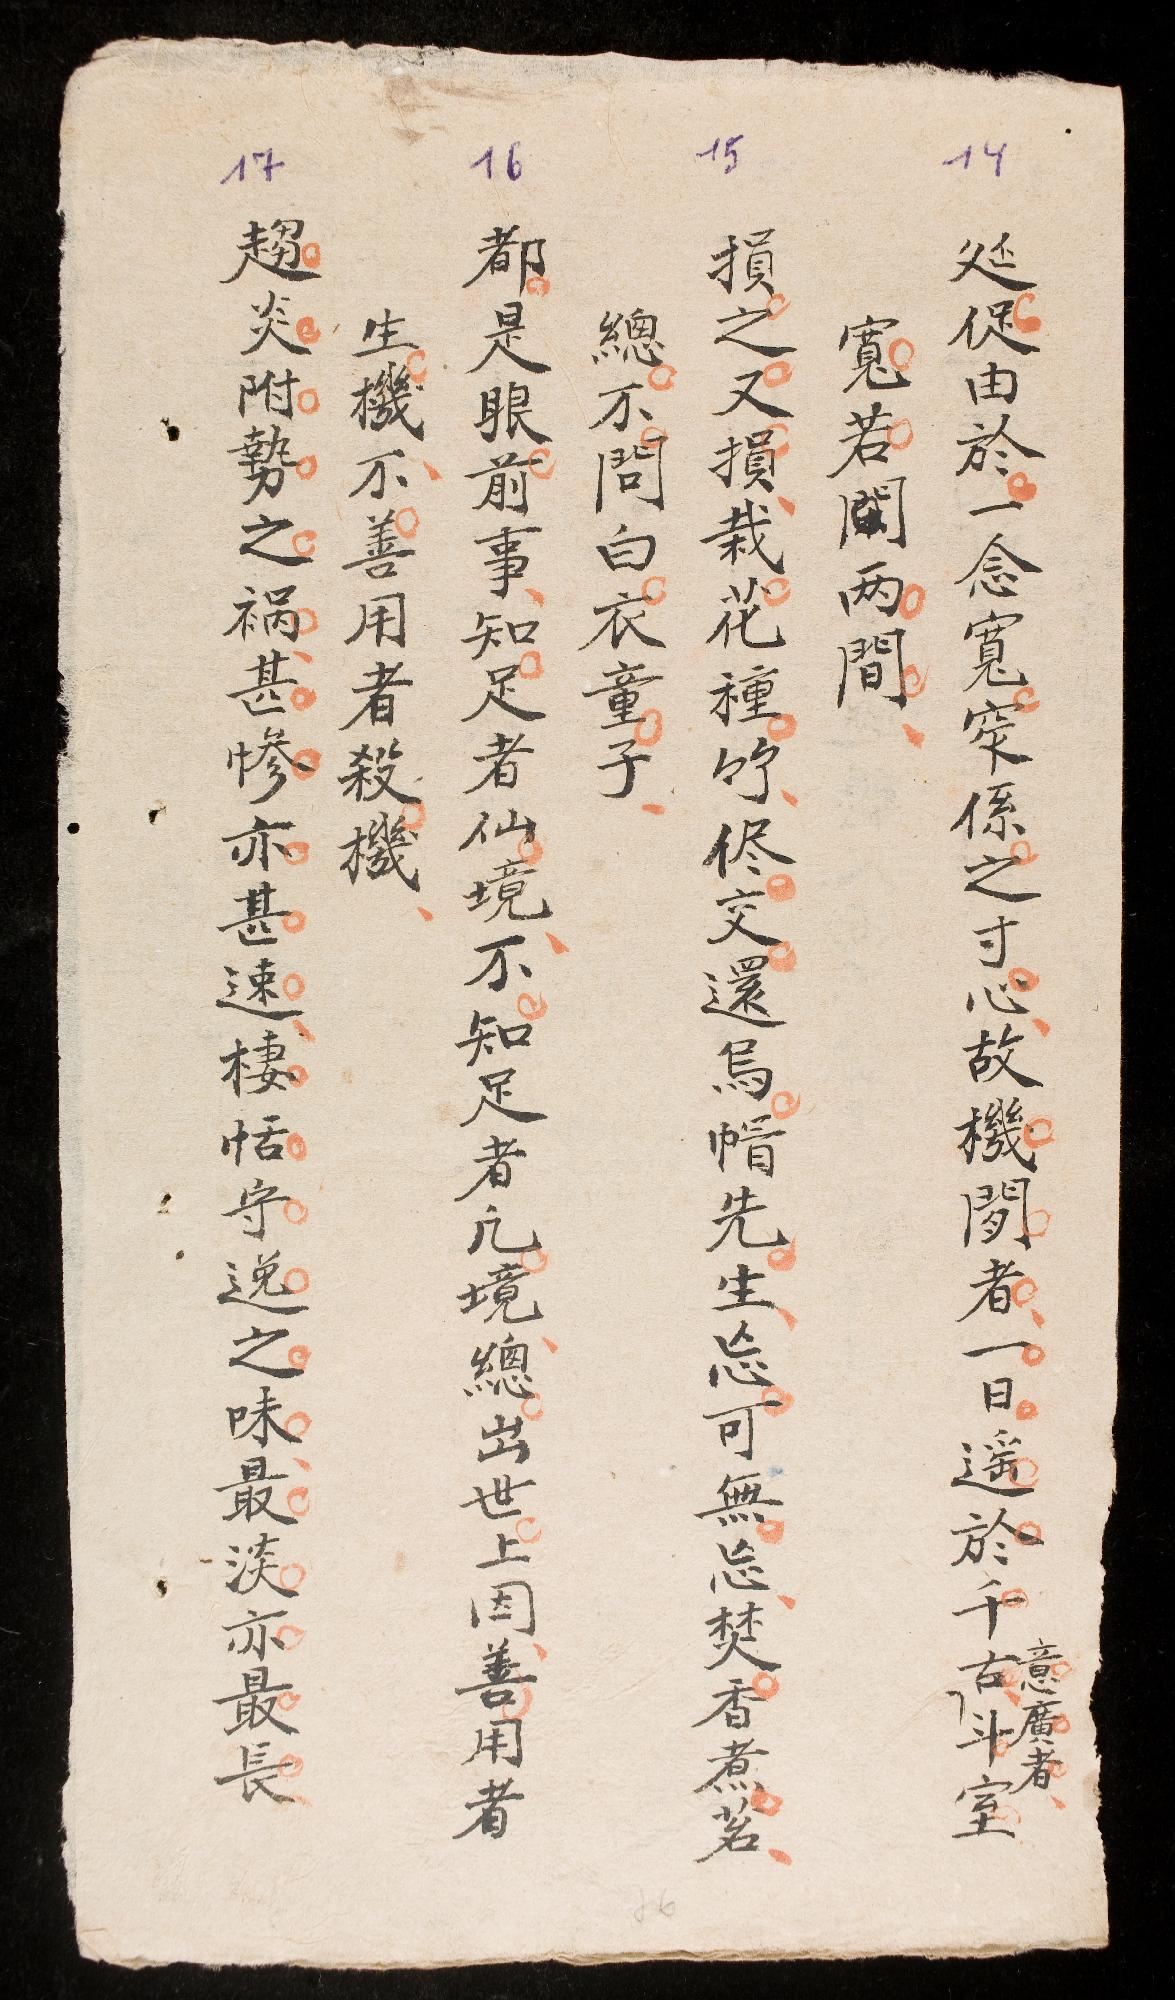 14
延促由於一念寬窄係之寸心故機閒者一日遥於千古意廣者斗室
寬若闊两間
15
損之又損栽花種竹侭交還烏帽先生忘可無忘焚香煮茗
總不問白衣童子
16
都是眼前事知足者仙境不知足者凢境總出世上因善用者
生機不善用者殺機
17
趨炎附勢之禍甚惨亦甚速棲恬守逸之味最淡亦最長